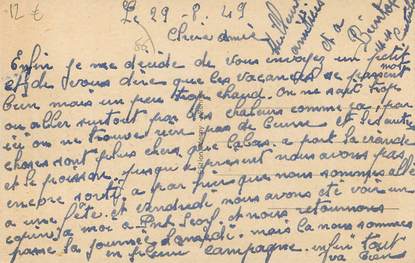 12 €
Le 29-8-49
Chère amie
Meilleures amitiés
et a Bientot
Enfin je me decide de vous envoyer un petit mot
et de vous dire que les vacances se passent
bien mais un peu trop chaud. on ne sait trop
ou aller surtout par des chaleurs comme ça, par
ici on ne trouve rien pas de Beurre et les autres
choses sont plus chers que a part la viande
et le poisson. jusqu'a present nous avons pas
encore sorti a part que nous sommes allé
a une fête. et vendredi nous avons été voir un
cousin a moi a Port et nous retournons
passé la journée mais la nous sommes
en pleine campagne. enfin tout
va bien